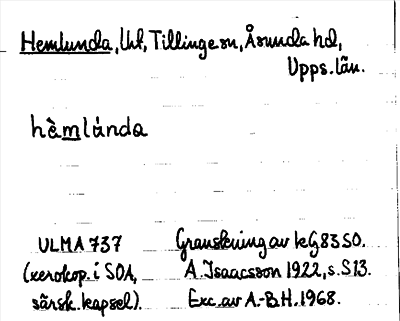 Hemlunda, Utt, Tillinge sn, Åsunda hd,
Upps. län.
hèmlúnda
ULMA 737
(xerokop. i SOA,
särsk. kapsel).
Granskning av kG 83 SO.
A. Isaacsson 1922, s. S13.
Exc. av A.-B.H. 1968.